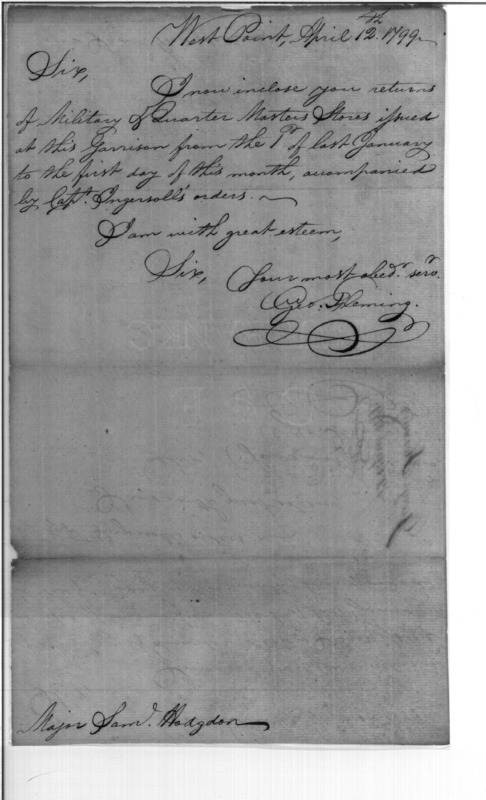 West Point, April 12th 1799
Sir,
I now inclose you returns
of Military & Quarter Masters Stores issued
at this Garrison from the 1st of last January
to the first day of this month, accompanied
by Capt. Ingersoll's orders.
I am with great esteem,
Sir, Your most obedt. servt.
Geo. Fleming.
Major Saml. Hodgdon